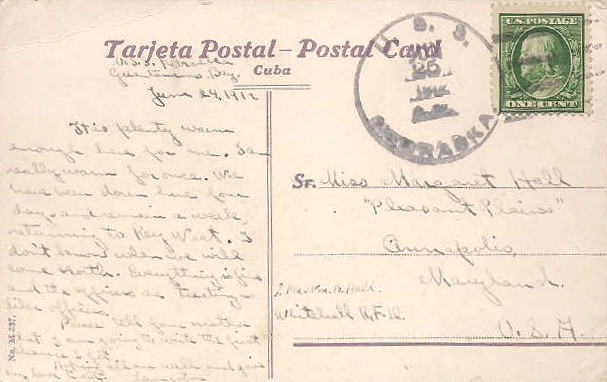 Tarjeta Postal – Postal Card
Cuba
U.S.S. Nebraska
Guantanamo Bay.
June 24, 1912
It is plenty warm
enough here for me. I am
really warm for once. We
have been down here four
days and remain a week,
returning to Key West. I
don't know when we will
come North. Everything is fine
and the officers are treating
like officers.
Please tell your mother
that I am going to write the first
chance I get.
Hoping all are well and give
my love
U. S. S.
JUN
25
NEBRASKA
U.S. POSTAGE
ONE CENT
Sr. Miss Margaret Hall
"Pleasant Plains"
Annapolis,
Maryland.
Whitehall R.F.D.
U.S.A.
No. M-337.